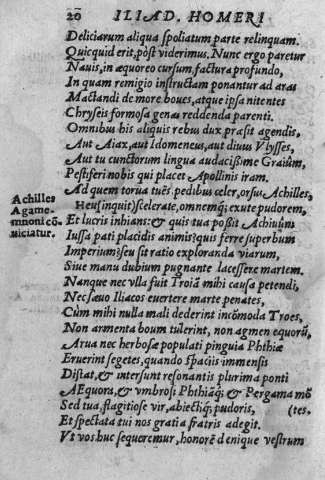 20 ILIAD. HOMERI
Deliciarum aliqua spoliatum parte relinquam.
Quicquid erit, post viderimus. Nunc ergo paretur
Nauis, in æquoreo cursum factura profundo,
In quam remigio instructam ponantur ad aras
Mactandi de more boues, atque ipsa nitentes
Chryseis formosa genas reddenda parenti.
Omnibus his aliquis rebus dux præsit agendis,
Aut Aiax, aut Idomeneus, aut diuus Vlysses,
Aut tu cunctorum lingua audacissime Graiûm,
Pestiferi nobis qui placet Apollinis iram.
Ad quem torua tuēs. pedibus celer, orsus Achilles,
Heus (inquit) scelerate, omnemq́; exute pudorem,
Et lucris inhians: & quis tua possit Achiuûm
Iussa pati placidis animis? quis ferre superbum
Imperium? seu sit ratio exploranda viarum,
Siue manu dubium pugnante lacessere martem.
Nanque nec vlla fuit Troiā mihi causa petendi,
Nec sæuo Iliacos euertere marte penates,
Cùm mihi nulla mali dederint incōmoda Troes,
Non armenta boum tulerint, non agmen equorū,
Arua nec herbosæ populati pinguia Phthiæ
Eruerint segetes, quando spaciis immensis
Distāt, & intersunt resonantis plurima ponti
AEquora, & vmbrosi Phthiāq́; & Pergama mō
Sed tua, flagitiose vir, abiectiq́; pudoris, (tes.
Et spectata tui nos gratia fratris adegit.
Vt vos huc sequeremur, honorē denique vestrum
Achilles
Agame-
mnoni cō
uiciatur.